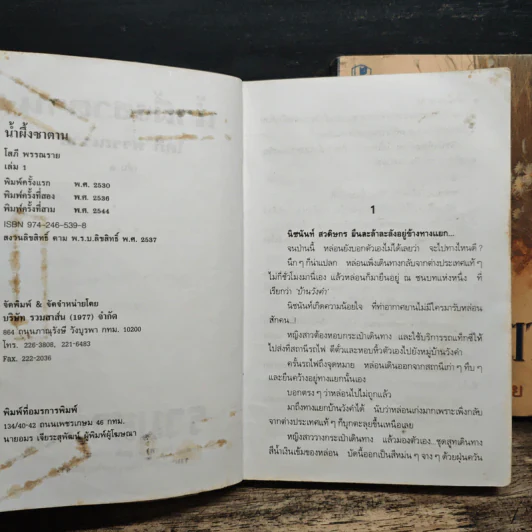 น้ำผึ้งซาตาน
โสภี พรรณราย
เล่ม 1
พิมพ์ครั้งแรก พ.ศ. 2530
พิมพ์ครั้งที่สอง พ.ศ. 2536
พิมพ์ครั้งที่สาม พ.ศ. 2544
ISBN 974-246-539-8
สงวนลิขสิทธิ์ ตาม พ.ร.บ.ลิขสิทธิ์ พ.ศ. 2537
จัดพิมพ์ & จัดจำหน่ายโดย
บริษัท รวมสาส์น (1977) จำกัด
864 ถนนภาณุรังษี วังบูรพา กทม. 10200
โทร. 226-3808, 221-6483
Fax. 222-2036
พิมพ์ที่อมรการพิมพ์
134/40-42 ถนนเพชรเกษม 46 กทม.
นายอมร เจียระสุพัฒน์ ผู้พิมพ์ผู้โฆษณา
1
นิชนันท์ สวดิษกร ยืนละล้าละลังอยู่ข้างทางแยก...
จนป่านนี้ หล่อนยังบอกตัวเองไม่ได้เลยว่า จะไปทางไหนดี ?
นึก ๆ ก็น่าแปลก หล่อนเพิ่งเดินทางกลับจากต่างประเทศแท้ ๆ
ไม่กี่ชั่วโมงมานี่เอง แล้วหล่อนก็มายืนอยู่ ณ ชนบทแห่งหนึ่ง ที่
เรียกว่า 'บ้านวังคำ'
นิชนันท์เกิดความน้อยใจ ที่ท่าอากาศยานไม่มีใครมารับหล่อน
สักคน..!
หญิงสาวต้องหอบกระเป๋าเดินทาง และใช้บริการรถแท็กซี่ให้
ไปส่งที่สถานีรถไฟ ตีตั๋วและหอบหิ้วตัวเองไปยังหมู่บ้านวังคำ
ครั้นรถไฟถึงจุดหมาย หล่อนเดินออกจากสถานีเก่า ๆ ทึบ ๆ
และยืนคว้างอยู่ทางแยกนั้นเอง
บอกตรง ๆ ว่าหล่อนไปไม่ถูกแล้ว
มาถึงทางแยกบ้านวังคำได้ นับว่าหล่อนเก่งมากเพราะเพิ่งกลับ
จากต่างประเทศแท้ ๆ ก็บุกตะลุยขึ้นเหนือเลย
หญิงสาววางกระเป๋าเดินทาง แล้วมองตัวเอง...ชุดสูทเดินทาง
สีน้ำเงินเข้มของหล่อน บัดนี้ออกเป็นสีหม่น ๆ จาง ๆ ด้วยฝุ่นควัน